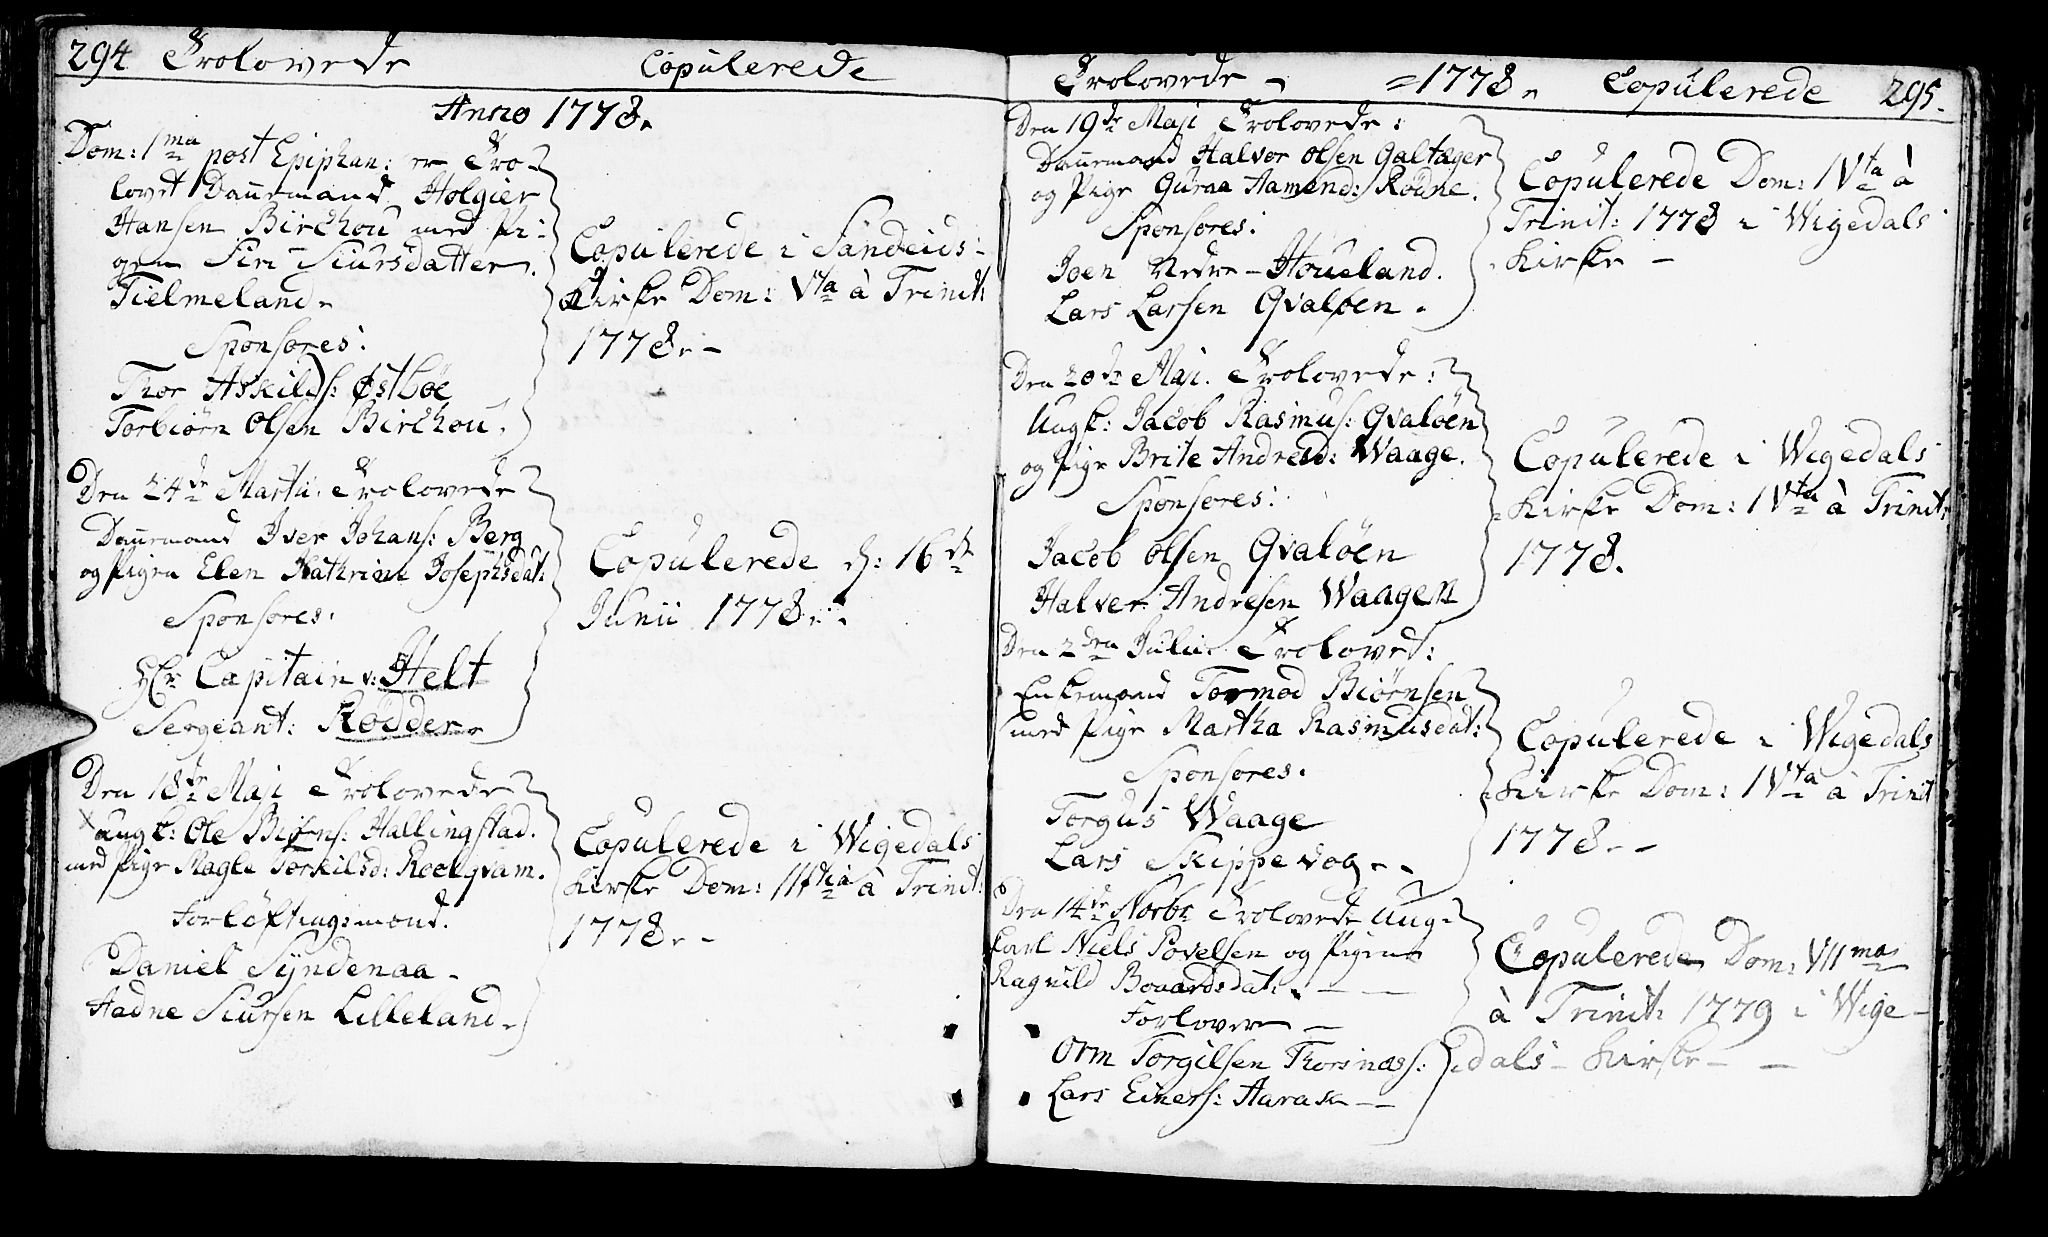 294 Trolovede Copulerede
Anno 1778.
Dom: 1ma post Epiphan: er Tro-
lovet Dannemand Holgier
Hansen Birchou med Pi-
gen Siri Siursdatter.
Tielmeland.
Sponsores:
Thor Askilds: Østbøe
Torbiörn Olsen Birchou.
Copulerede i Sandeids-
Kirke Dom: Vta à Trinit:
1778.-
Den 24de Martii. Trolovede
Dannemand Iver Johans: Berg
og Pigen Elen Kathrine Josephsdat:
Sponsores:
Hr Capitain v: Helt
Sergeant: Rödder.
Copulerede d: 16de
Junii 1778.-.
Den 18de Maji Trolovede
Ungk: Ole Biörns: Hallingstad.
med Pige Magle Torkilsd: Roelqvam.
Forlöftingsmænd.
Daniel Syndenaa.
Hadne Siursen Lilleland.
Copulerede i Wigedals
Kirke Dom: IIItia à Trinit:
1778.-
Trolovede - =1778. Copulerede 295.
Den 19de Maji Trolovede:
Dannemand Halvor Olsen Galtæger
og Pige Guroa Aamund: Rödne.
Sponsores:
Joen Nedre-Houeland.
Lars Larsen Qvaløen.
Copulerede Dom: IVta à
Trinit: 1778 i Wigedals
Kirke -
Den 20de Maji. Trolovede:
Ungk: Jacob Rasmus: Qvalöen
og Pige Brite Andresd: Waage.
Sponsores:
Jacob Olsen Qvalöen
Halver Andresen Waagen
Copulerede i Wigedals
Kirke Dom: IVta à Trinit:
1778.
Den 2den Julii Trolovet:
Enkemand Tormod Biörnsen
med Pige Martha Rasmusdat:
Sponsores.
Torgus Waage
Lars Skippevog.-
Copulerede i Wigedals
Kirke Dom: IVta à Trinit
1778.-
Den 14de Novbr Trolovede Ung-
karl Niels Povelsen og Pigen
Ragnild Bouardsdat:.--
Forlovere -
Orm Torgilsen Thorsnæs:
Lars Einers: Aarak --
Copulerede Dom: VIIma
à Trinit: 1779 i Wige-
dals- Kirke--